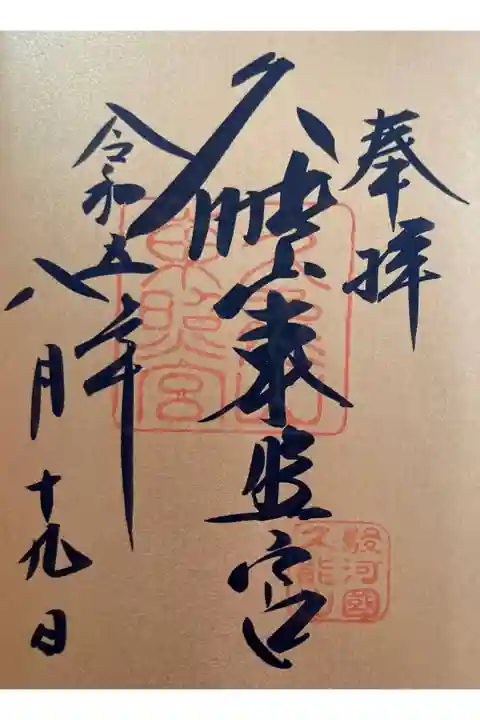 奉拝
久能山東照宮
令和五年
八月十九日
久能山
東照宮
駿河國
久能山